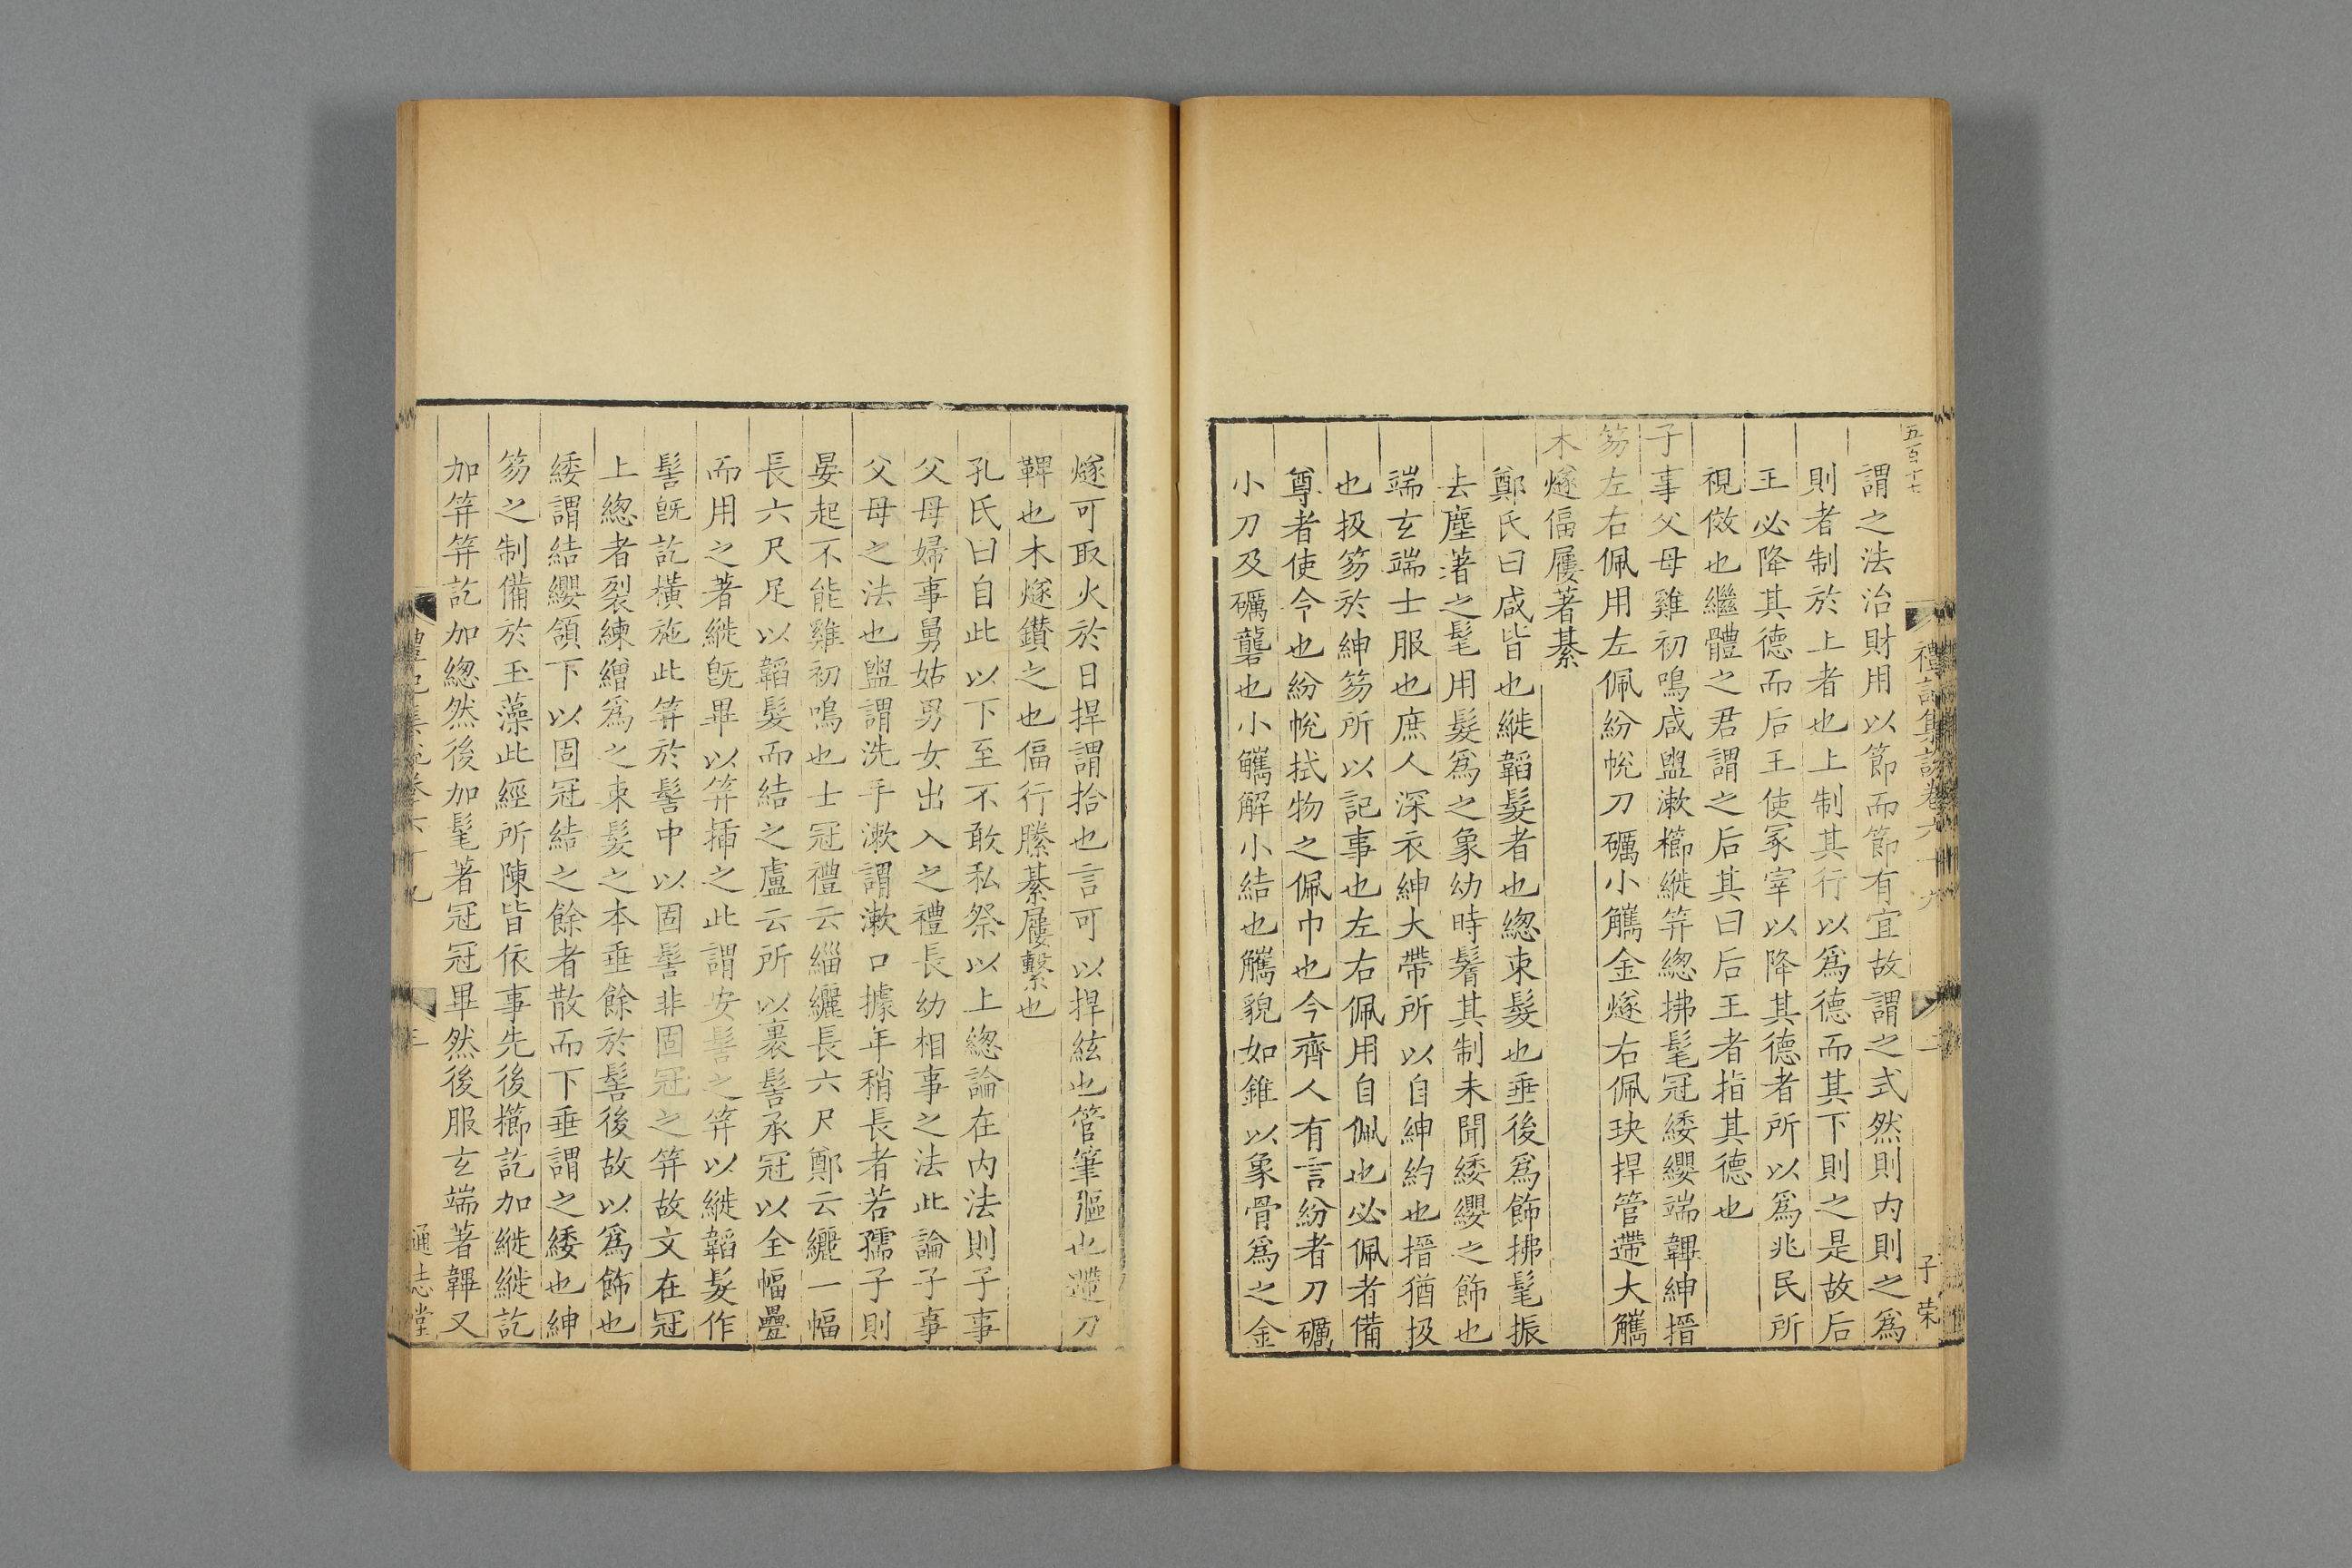 五百十七
禮記集說卷六十九
二
子荣
謂之法治財用以節而節有宜故謂之式然則內則之為
則者制於上者也上制其行以為德而其下則之是故后
王必降其德而后王使冢宰以降其德者所以為兆民所
視傚也繼體之君謂之后其曰后王者指其德也
子事父母雞初鳴咸盥漱櫛縰笄緫拂髦冠緌纓端韠紳搢
笏左右佩用左佩紛帨刀礪小觿金燧右佩玦捍管遰大觿
木燧偪屨著綦
鄭氏曰咸皆也縰韜髮者也緫束髮也垂後為飾拂髦振
去塵著之髦用髮為之象幼時鬌其制未聞緌纓之飾也
端玄端士服也庶人深衣紳大帶所以自紳約也搢猶扱
也扱笏於紳笏所以記事也左右佩用自佩也必佩者備
尊者使令也紛帨拭物之佩巾也今齊人有言紛者刀礪
小刀及礪礱也小觿解小結也觿貌如錐以象骨為之金
燧可取火於日捍謂拾也言可以捍絃也管筆彄也遰刀
鞞也木燧鑽之也偪行縢綦屨繫也
孔氏曰自此以下至不敢私祭以上緫論在內法則子事
父母婦事舅姑男女出入之禮長幼相事之法此論子事
父母之法也盥謂洗手漱謂漱口據年稍長者若孺子則
晏起不能雞初鳴也士冠禮云緇纚長六尺鄭云纚一幅
長六尺足以韜髮而結之盧云所以裹髻承冠以全幅疊
而用之著縰既畢以笄插之此謂安髻之笄以縰韜髮作
髻既訖橫施此笄於髻中以固髻非固冠之笄故文在冠
上緫者裂練繒為之束髮之本垂餘於髻後故以為飾也
緌謂結纓頷下以固冠結之餘者散而下垂謂之緌也紳
笏之制備於玉藻此經所陳皆依事先後櫛訖加縰縰訖
加笄笄訖加緫然後加髦著冠冠畢然後服玄端著韠又
禮記集說卷六十九
三
通志堂